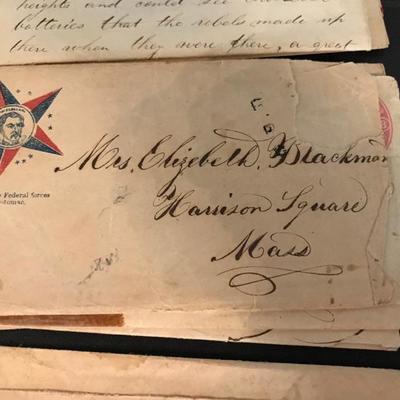 heights and could see
batteries that the rebels made up
there when they were there, a great
Mrs. Elizebeth Blackman
Harrison Square
Mass
Federal forces